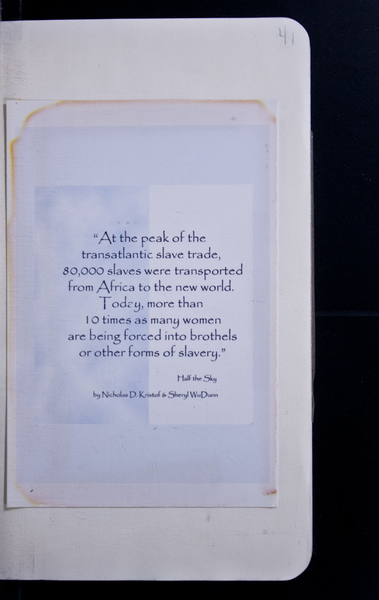 41
“At the peak of the
transatlantic slave trade,
80,000 slaves were transported
from Africa to the new world.
Today, more than
10 times as many women
are being forced into brothels
or other forms of slavery.”
Half the Sky
by Nicholas D. Kristof & Sheryl WuDunn